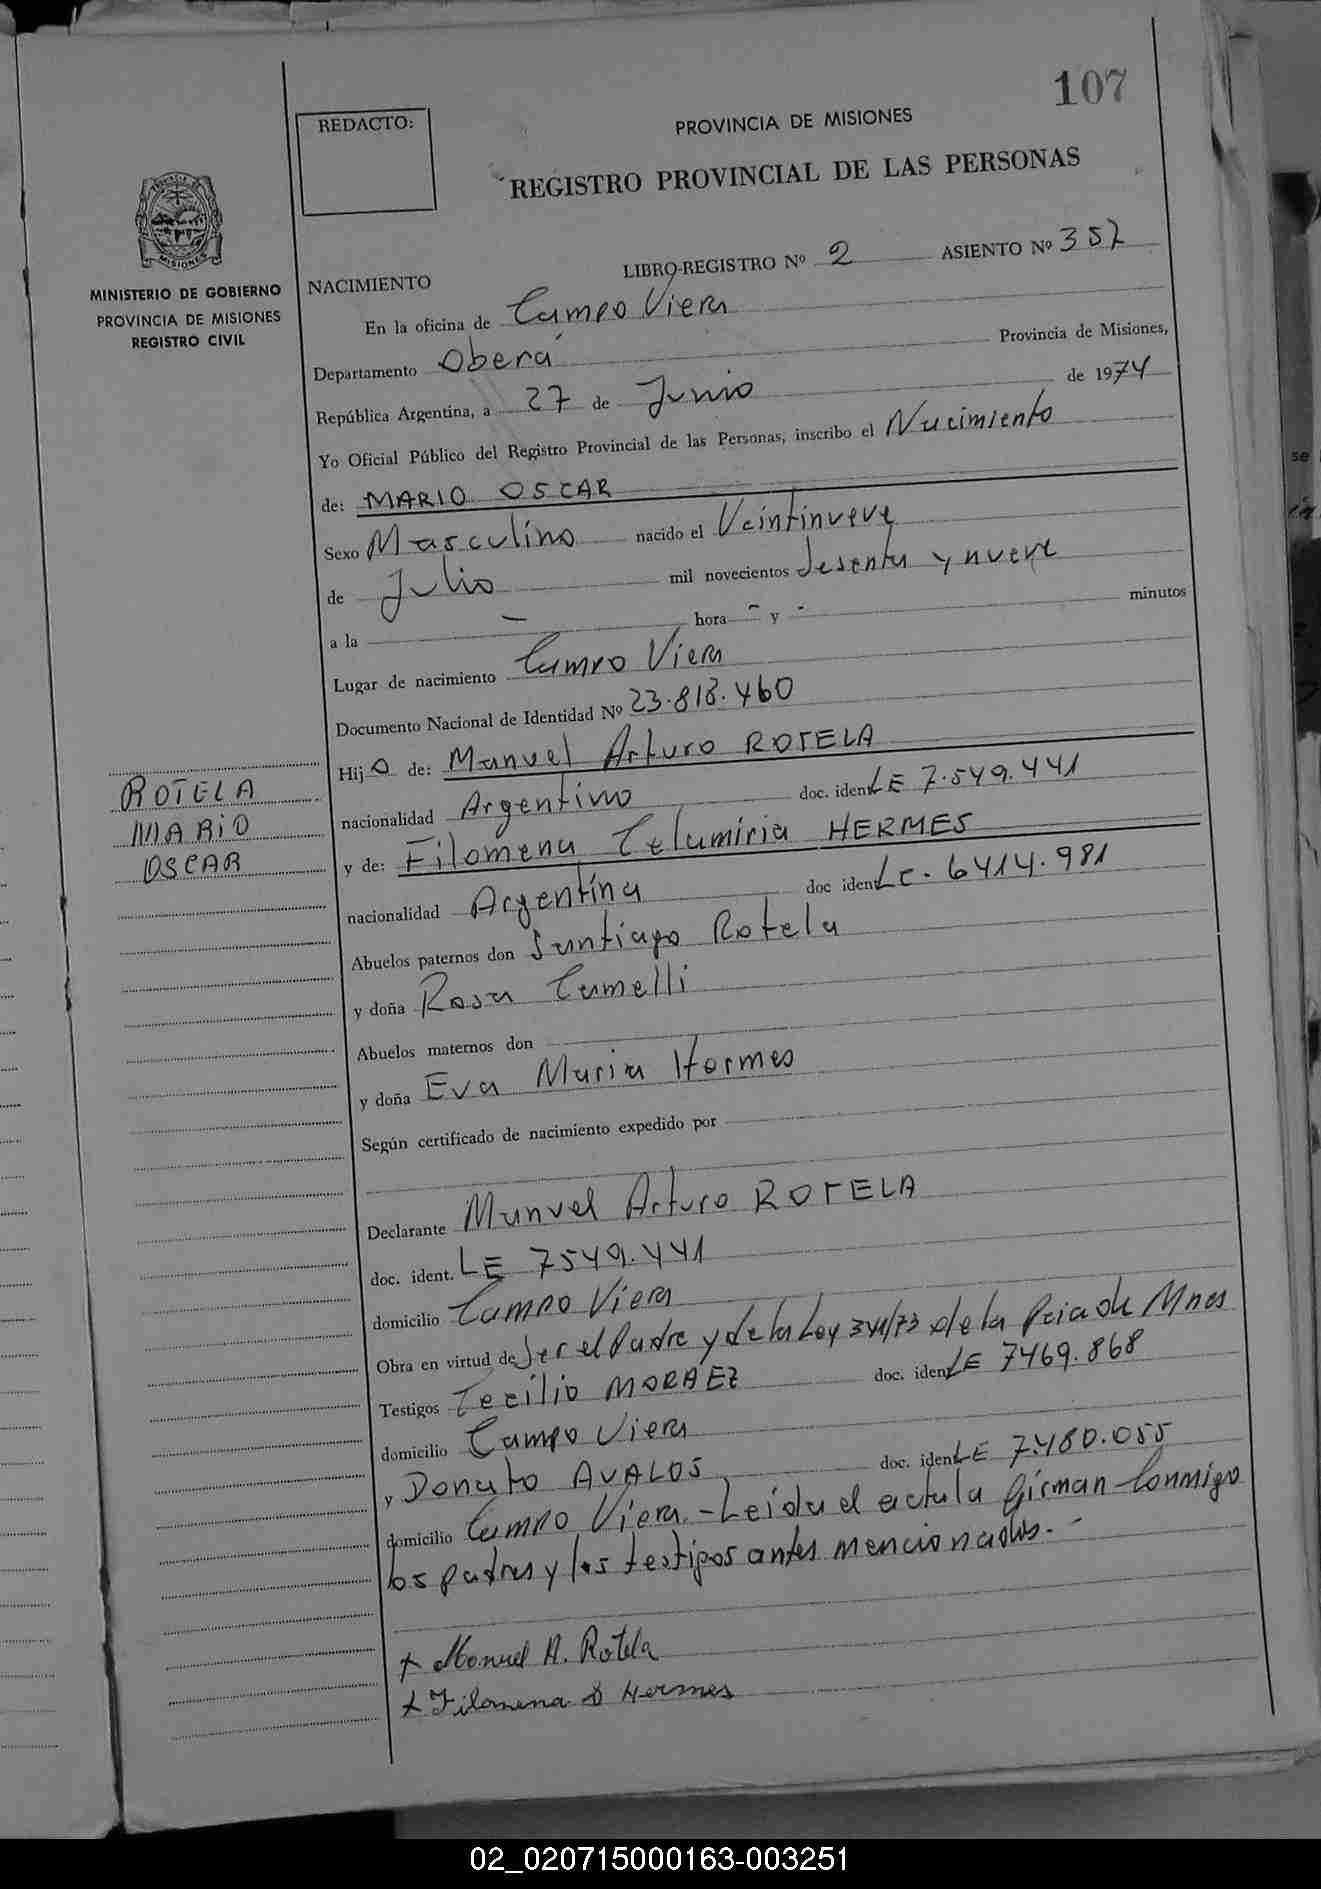 107
REDACTO:
PROVINCIA DE MISIONES
REGISTRO PROVINCIAL DE LAS PERSONAS
MINISTERIO DE GOBIERNO
PROVINCIA DE MISIONES
REGISTRO CIVIL
NACIMIENTO LIBRO-REGISTRO Nº 2 ASIENTO Nº 357
En la oficina de Campo Viera
Departamento Oberá Provincia de Misiones,
República Argentina, a 27 de Junio de 1974
Yo Oficial Público del Registro Provincial de las Personas, inscribo el Nacimiento
de: MARIO OSCAR
Sexo Masculino nacido el Veintinueve
de Julio mil novecientos sesenta y nueve
a la - hora - y - minutos
Lugar de nacimiento Campo Viera
Documento Nacional de Identidad Nº 23.818.460
Hijo de: Manuel Arturo ROTELA
nacionalidad Argentino doc. ident LE 7.549.441
y de: Filomena HERMES
nacionalidad Argentina doc iden LC. 6414.981
Abuelos paternos don Santiago Rotela
y doña Rosa Camelli
Abuelos maternos don
y doña Eva Maria Hermes
Según certificado de nacimiento expedido por
Declarante Manuel Arturo ROTELA
doc. ident. LE 7549.441
domicilio Campo Viera
Obra en virtud de ser el Padre y de la Ley 341/73 de la Pcia de Mnes
Testigos Cecilio MORAEZ doc. iden LE 7469.868
domicilio Campo Viera
y Donato AVALOS doc. iden LE 7.480.055
domicilio Campo Viera.- Leida el acta la firman Conmigo
los padres y los testigos antes mencionados.-
x Manuel A. Rotela
x Filomena Hermes
ROTELA
MARIO
OSCAR
02_020715000163-003251